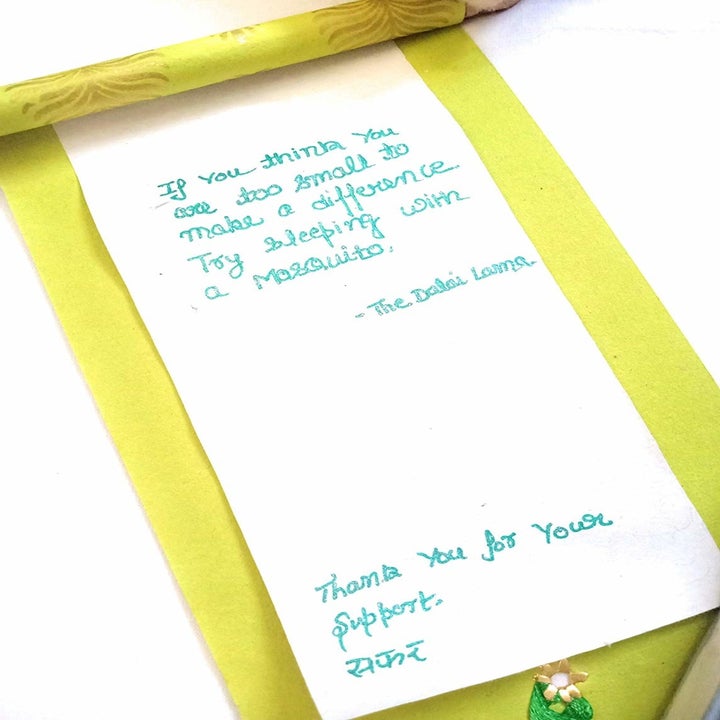 If You think You
are too small to
make a difference
Try sleeping with
a Mosquito.
- The Dalai Lama
Thank You for Your
Support.
सफर